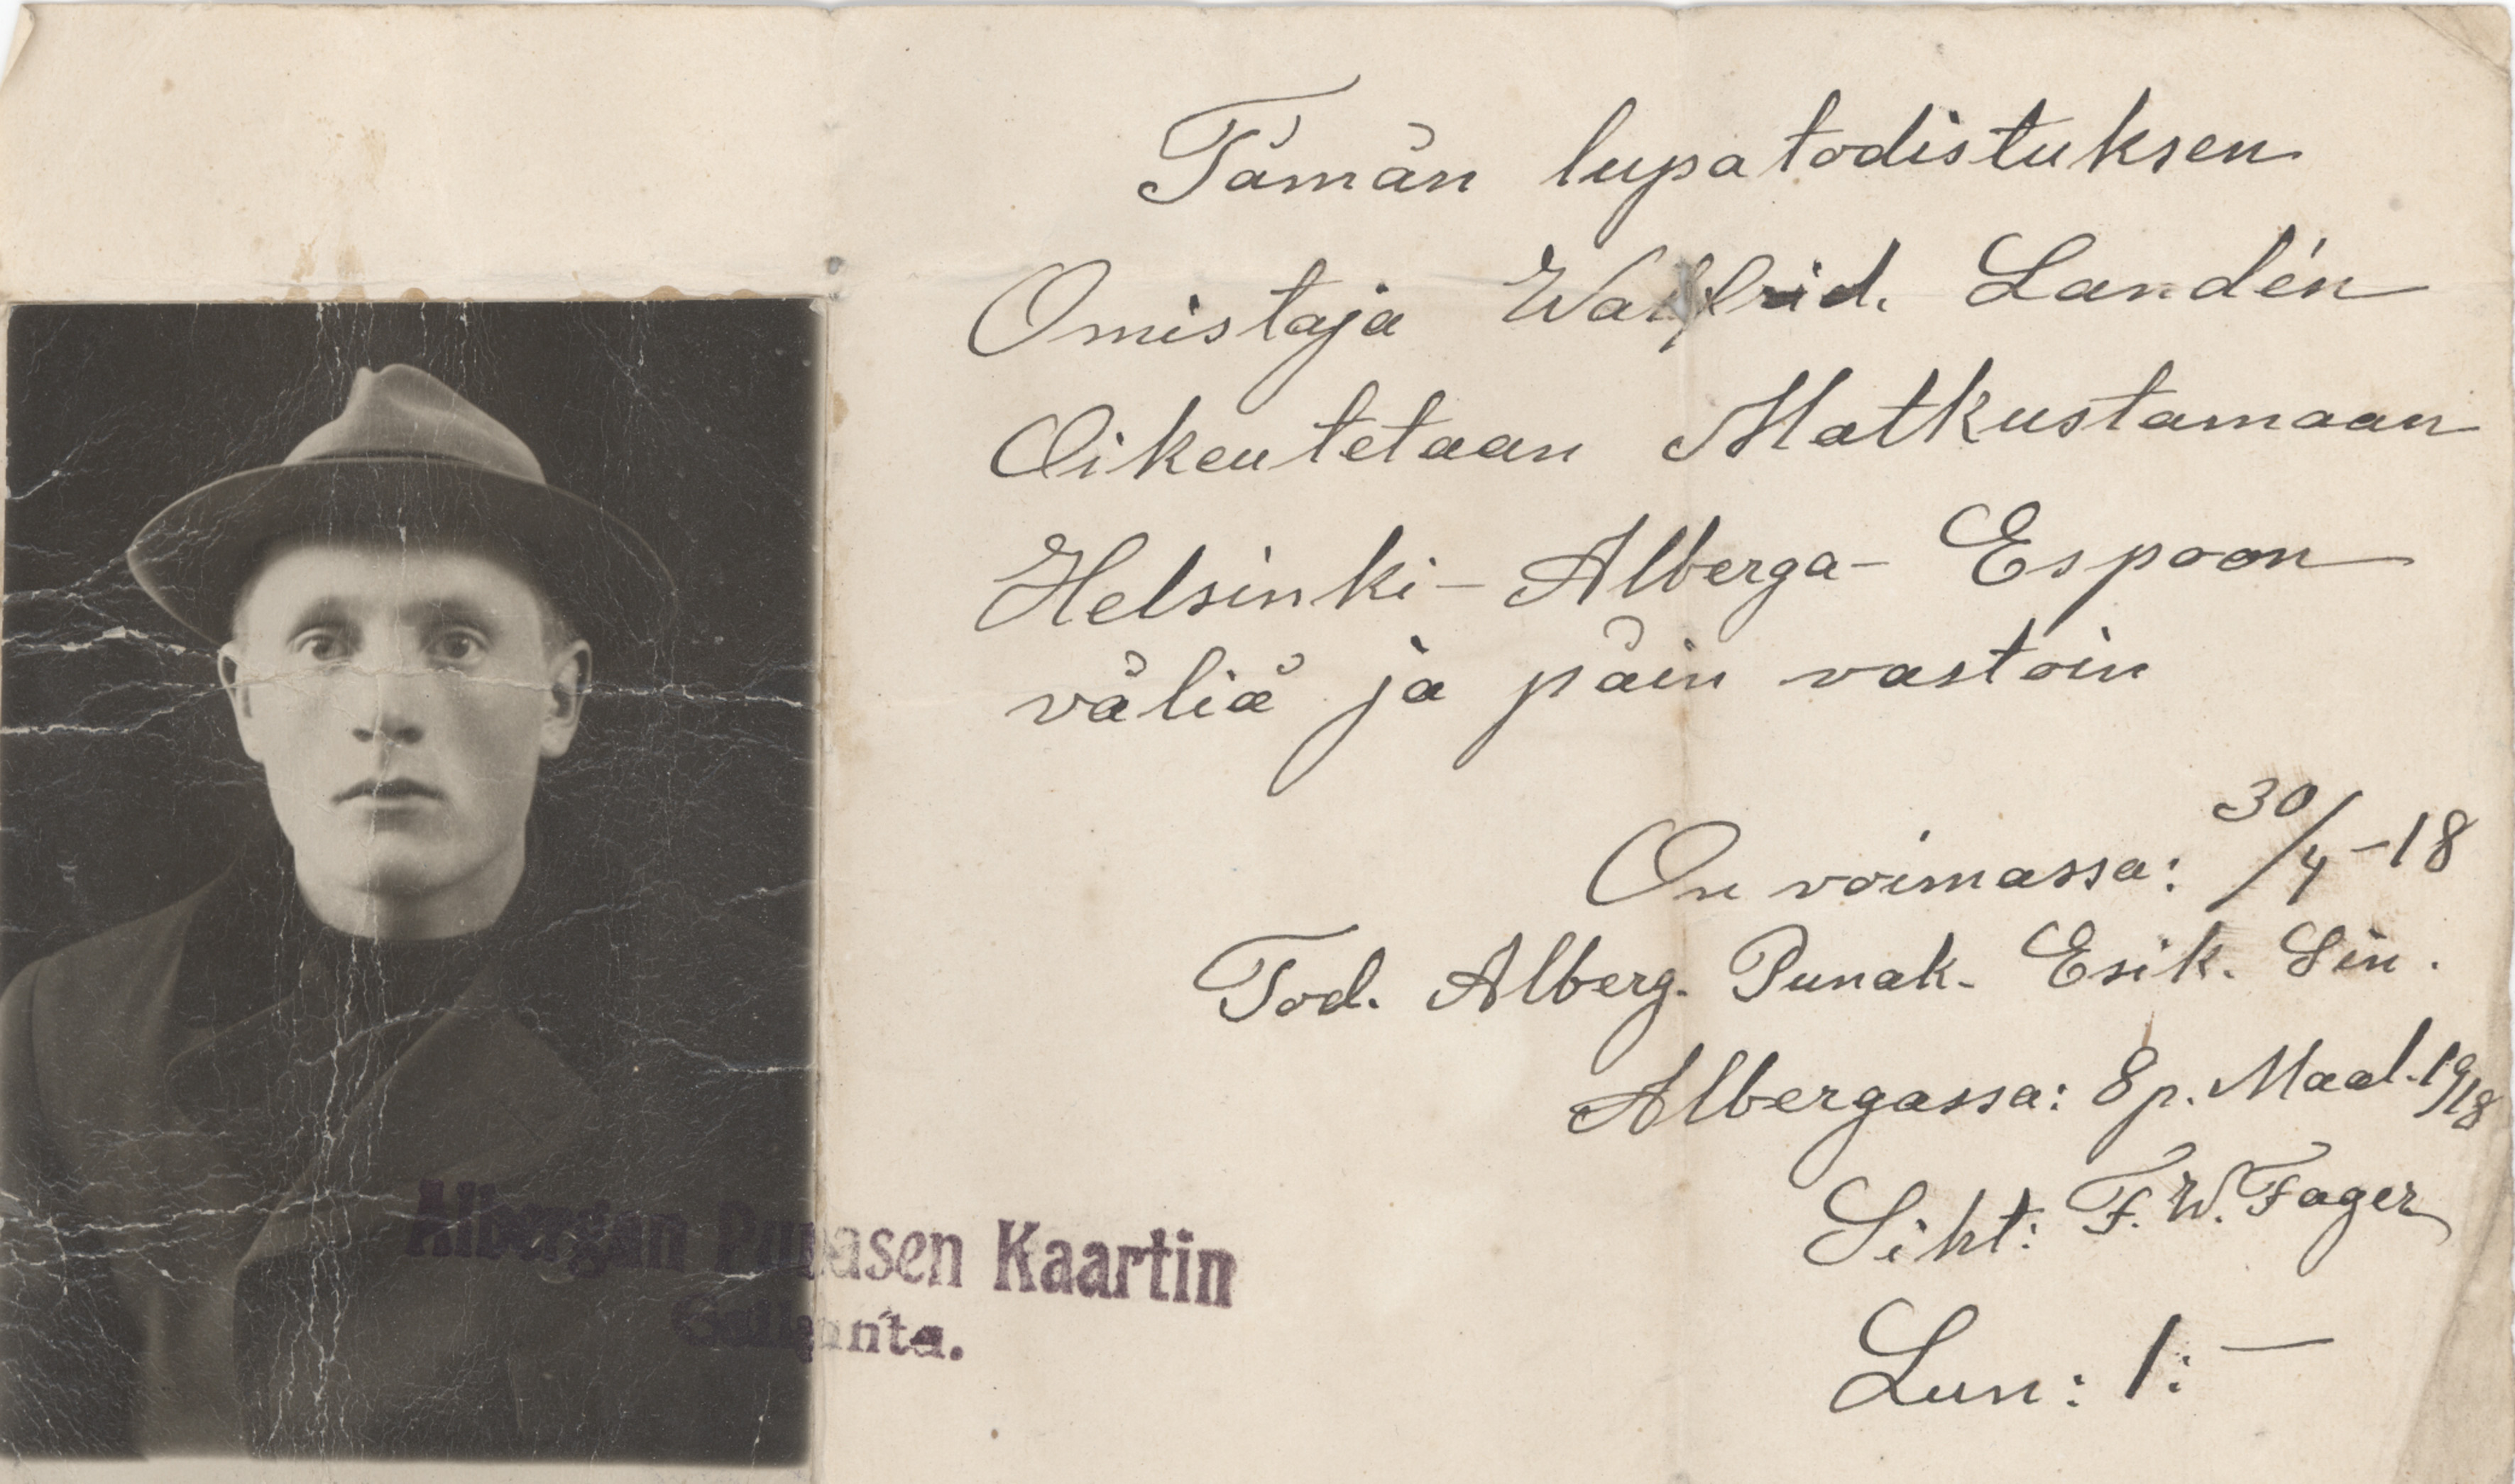 Tämän lupatodistuksen
Omistaja Walfrid. Landén
Oikeutetaan Matkustamaan
Helsinki - Alberga - Espoon
väliä ja päin vastoin
On voimassa: 30/4 - 18
Tod. Alberg. Punak. Esik. Sin.
Albergassa: 8 p. Maal. 1918
Siht: F. W. Fager
Lun: 1: —
Albergan Punasen Kaartin